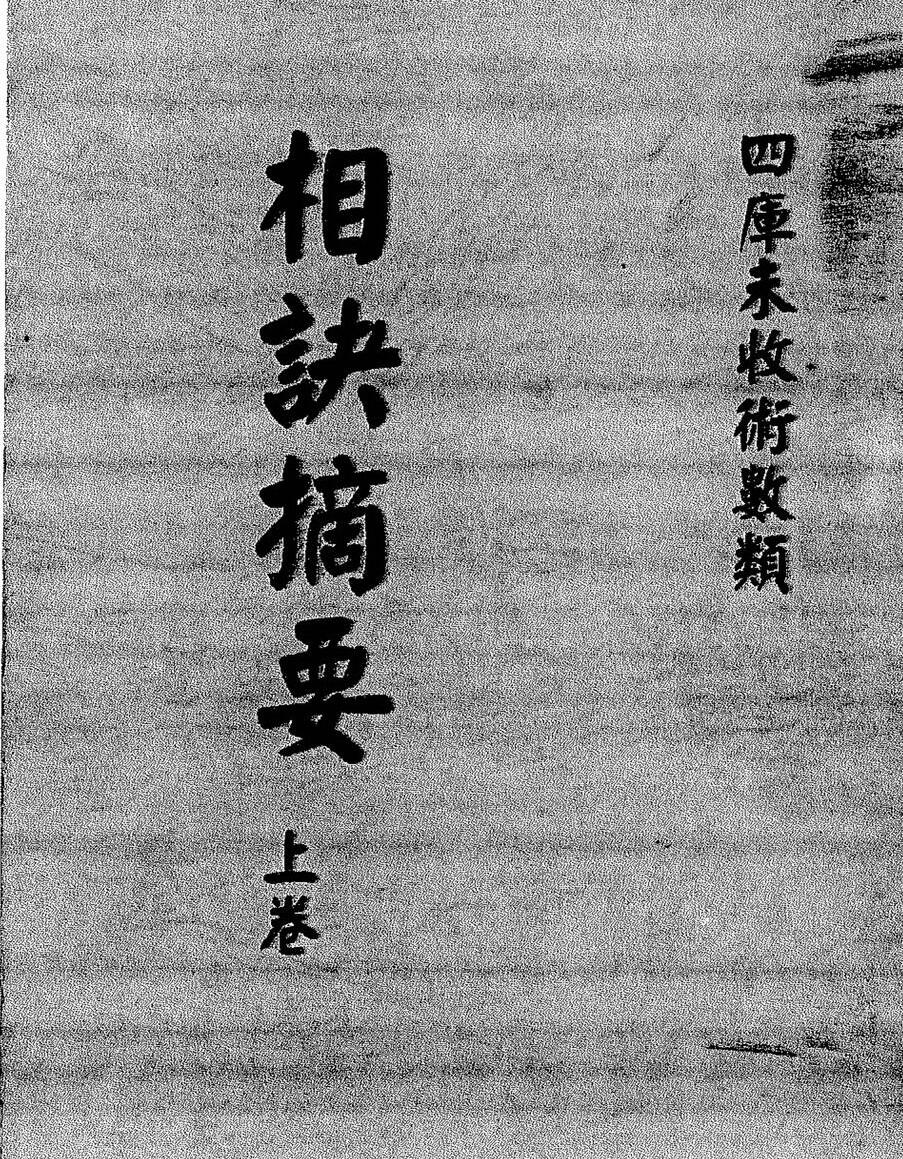 四庫未收術數類
相訣摘要
上卷